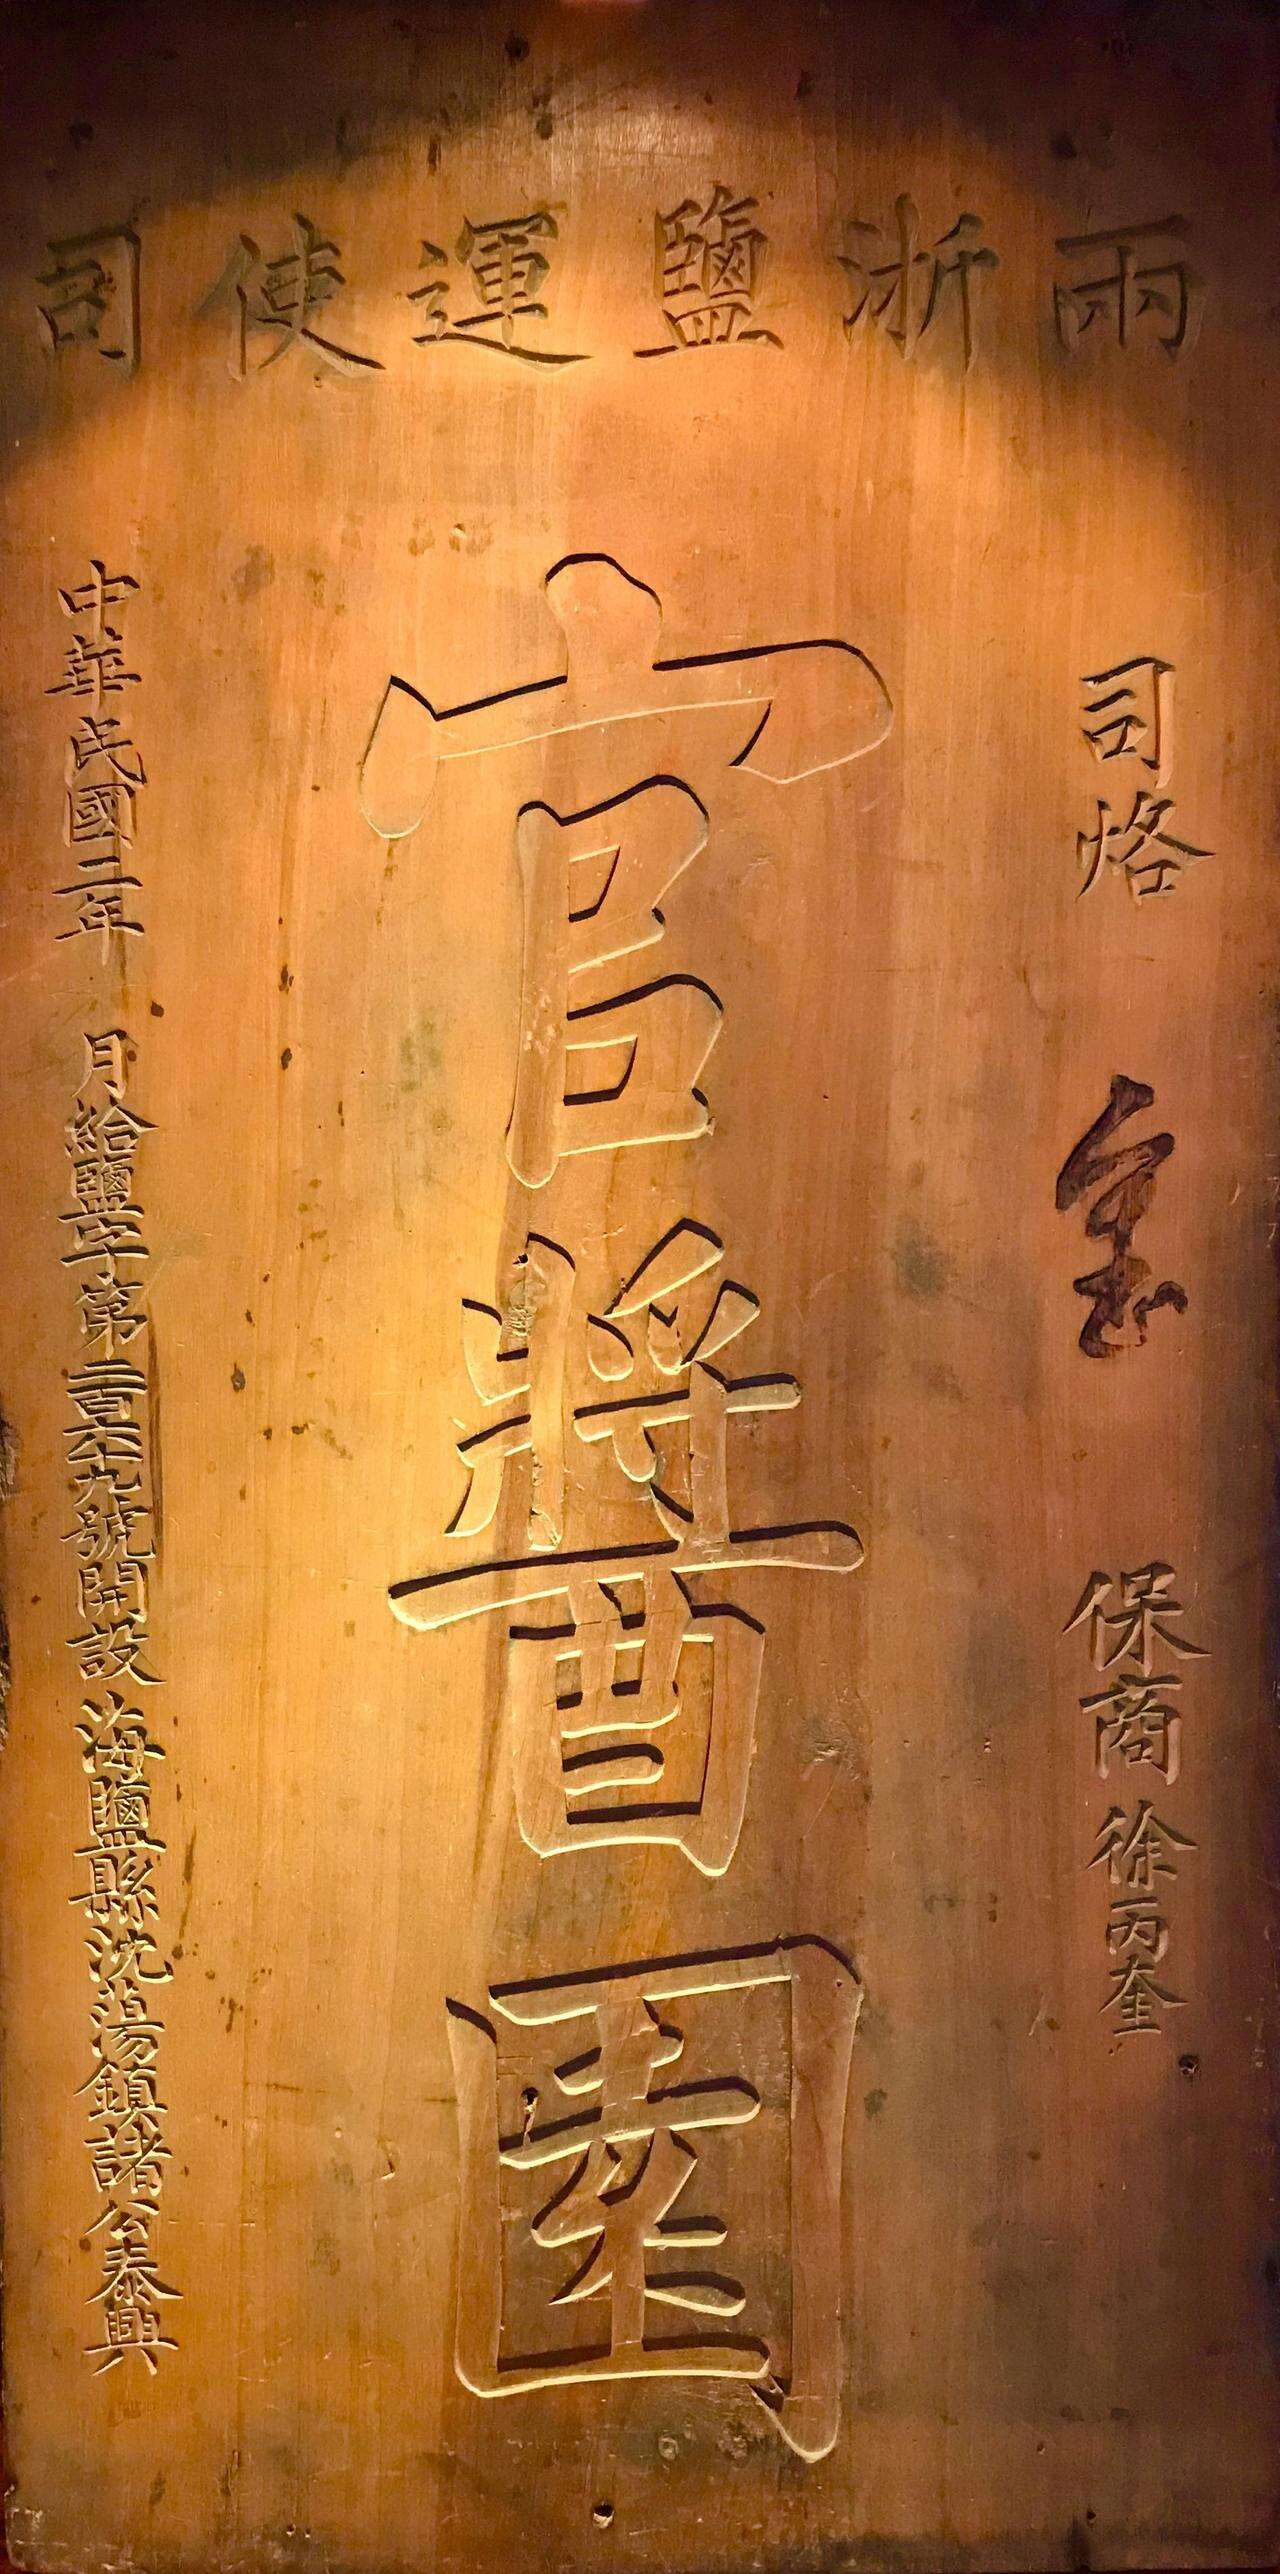 兩浙鹽運使司
司烙
保商 徐丙奎
官醬園
中華民國二年 月給鹽字第二百六十九號開設海鹽縣沈蕩鎮諸公泰興